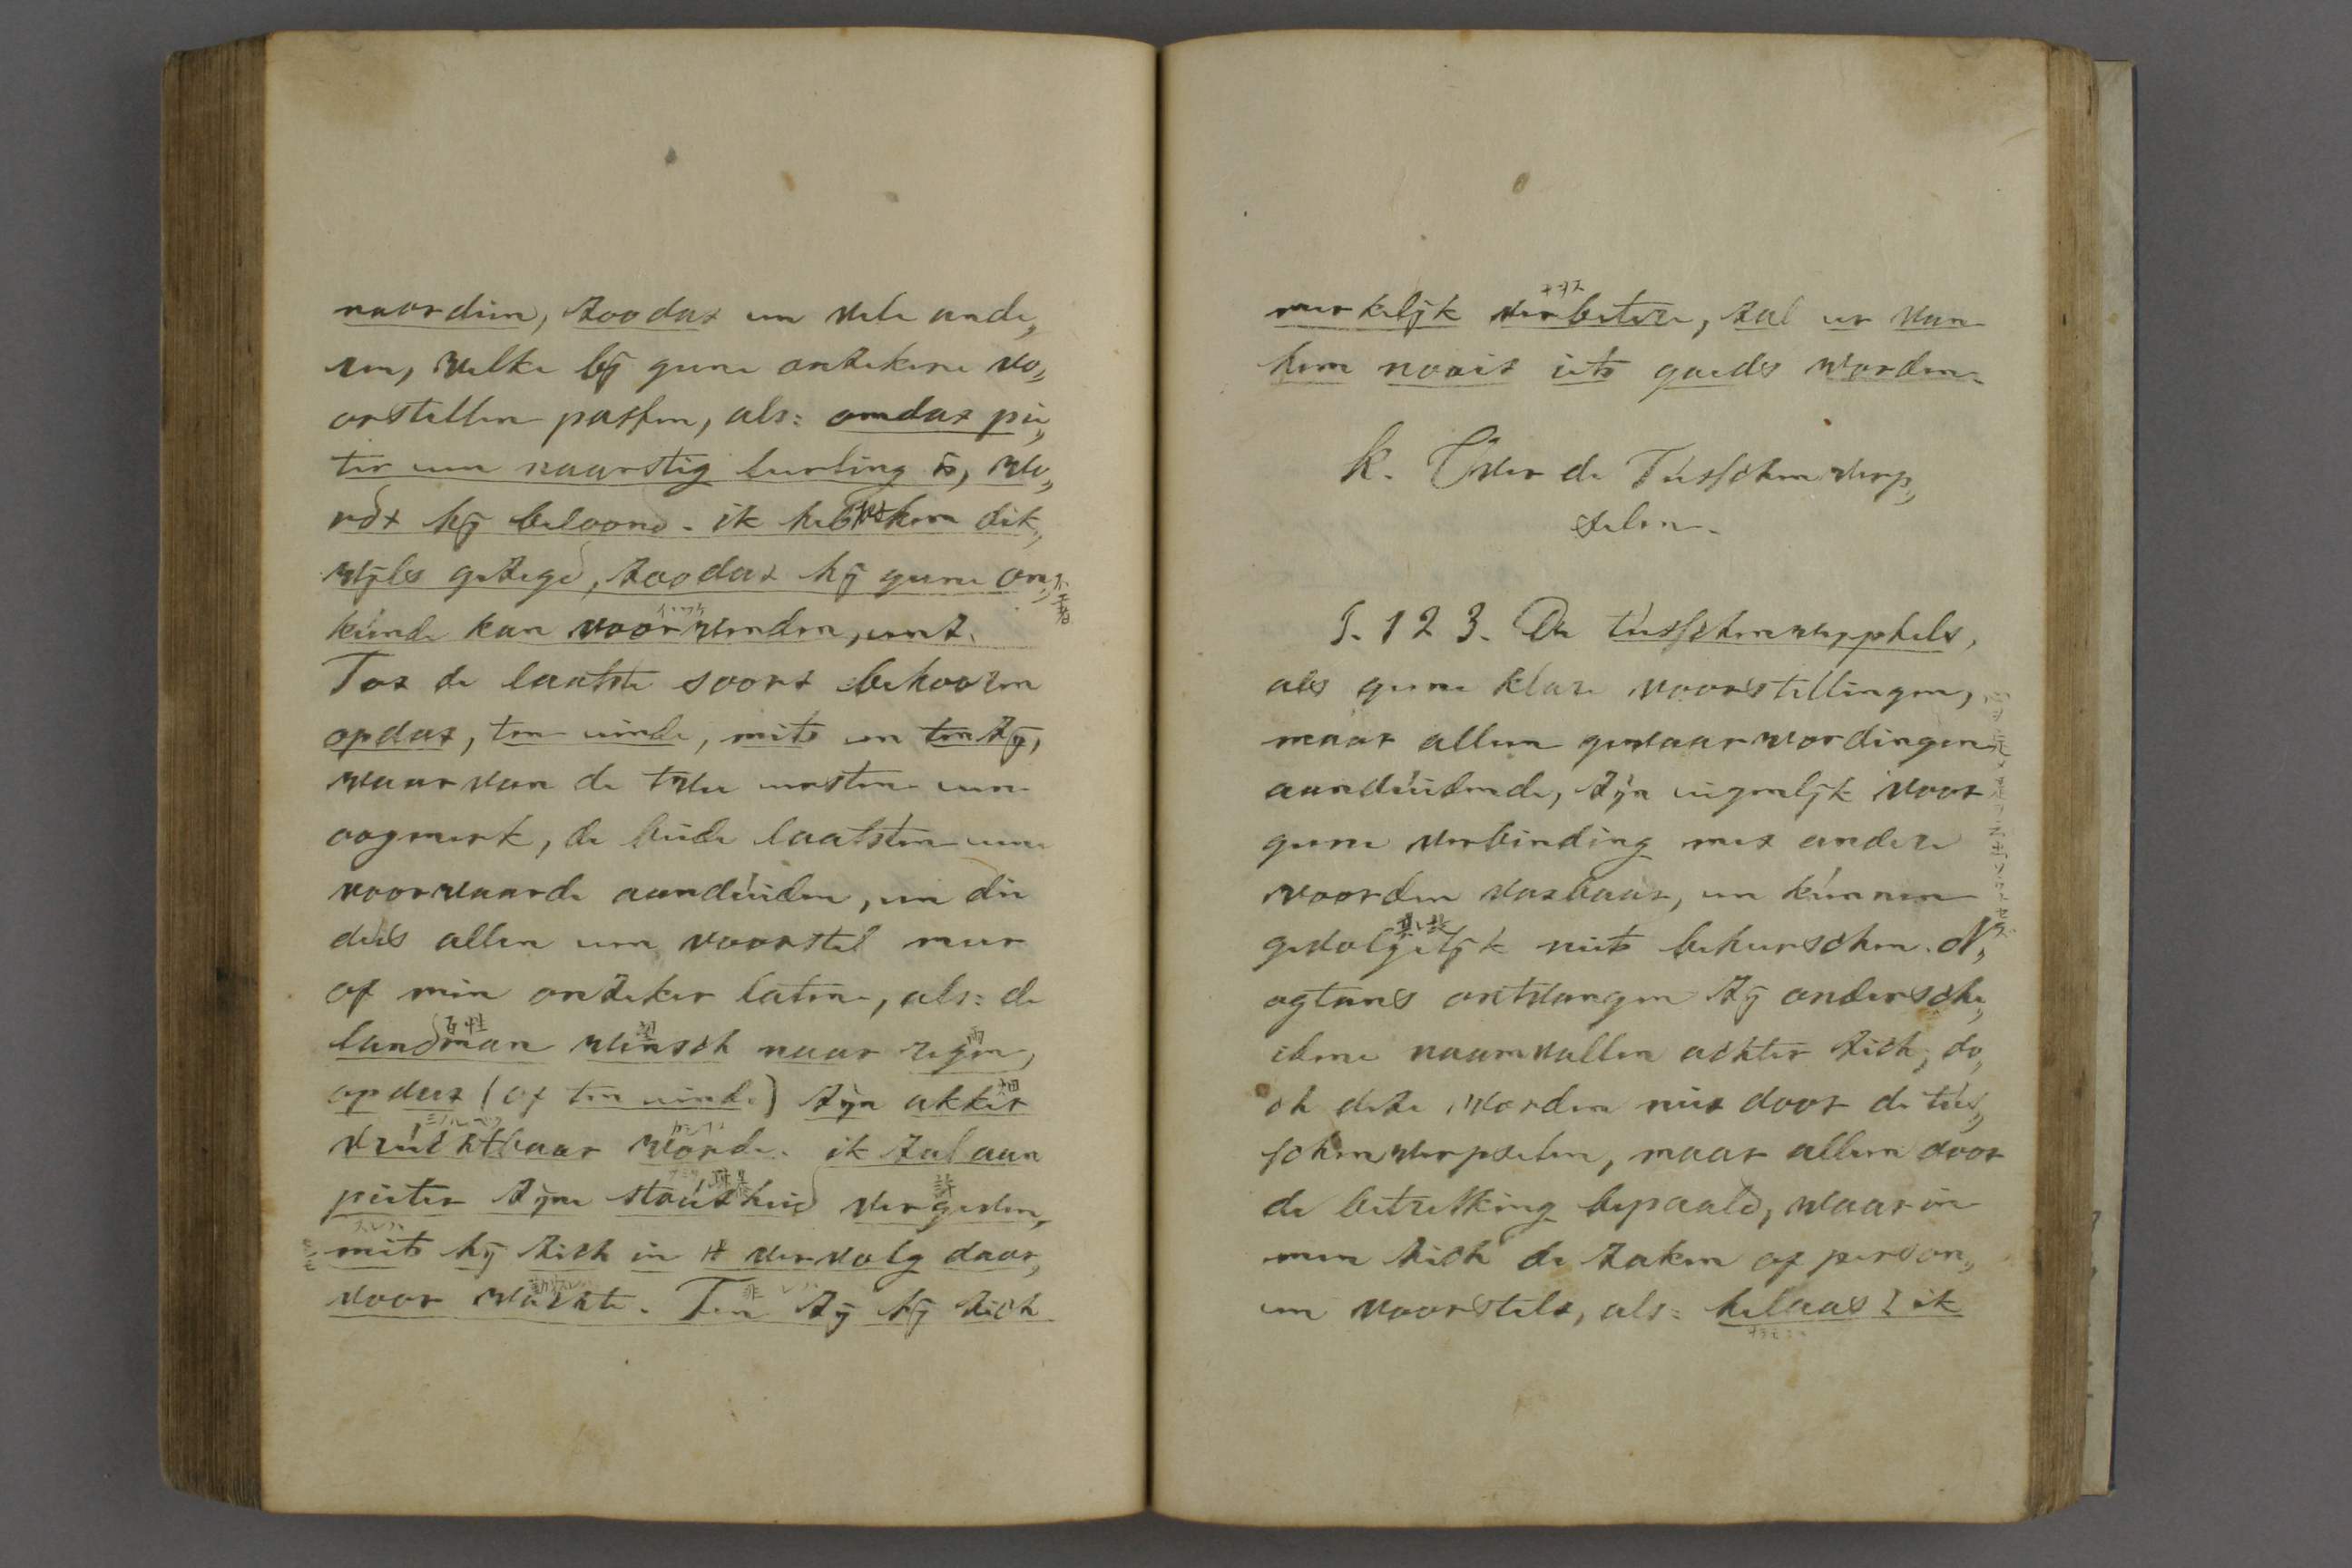 naardien, zoodat en vele ande„
ren, welke bij geene onzekere vo„
orstellen passen, als: omdat pie„
ter een naarstig leerling is, wo„
rdt hij beloond. ik heb het hem dik„
wijls gezegd, zoodat hij geene on„
kúnde kan voorwenden, enz.
Tot de laatste soort behooren
opdat, ten einde, mits en tenzij,
waarvan de twee eersten een
oogmerk, de beide laatsten eene
voorwaarde aandúiden, en die
dús allen een voorstel meer
of min onzeker laten, als: de
landman wenscht naar regen,
百性
望
雨
opdat (of ten einde) zijn akker
畑
vrúchtbaar worde. ik zal aan
pieter zijne stoútheid vergeven,
許
mits hij zich in 't vervolg daar„
voor wachte. Ten zij hij zich
非
merkelijk verbetere, zal er van
hem nooit iets goeds worden.
k. Over de Tússchenwerp„
selen.
§. 123. De tússchenwerpsels,
als geene klare voorstellingen,
maar alleen gewaarwordingen
aandúidende, zijn eigenlijk voor
geene verbinding met andere
woorden vatbaar, en kúnnen
gevolgelijk niets beheerschen. N„
ogtans ontvangen zij onderschei„
idene naamvallen achter zich; do„
ch deze worden niet door de tús„
schenwerpselen, maar alleen door
de betrekking bepaald, waarin
men zich de zaken of person„
en voorstelt, als: helaas! ik